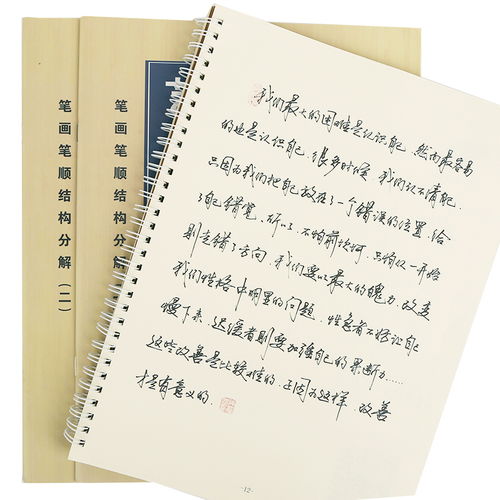 笔画笔顺结构分解(二)
笔画笔顺结构分解
我们最大的困难是认识自己，然而最容易
的也是认识自己。很多时候，我们认不清自己，
只因为我们把自己放在了一个错误的位置，给
了自己错觉。所以，不怕前坎坷，只怕从一开始
则走错了方向。我们要以最大的魄力，改变
我们性格中明显的问题。性急者不妨让自己
慢下来，迟缓者则要加强自己的果断力……
这些改善是比较难的，正因为这样，改善
才是有意义的。
-12-